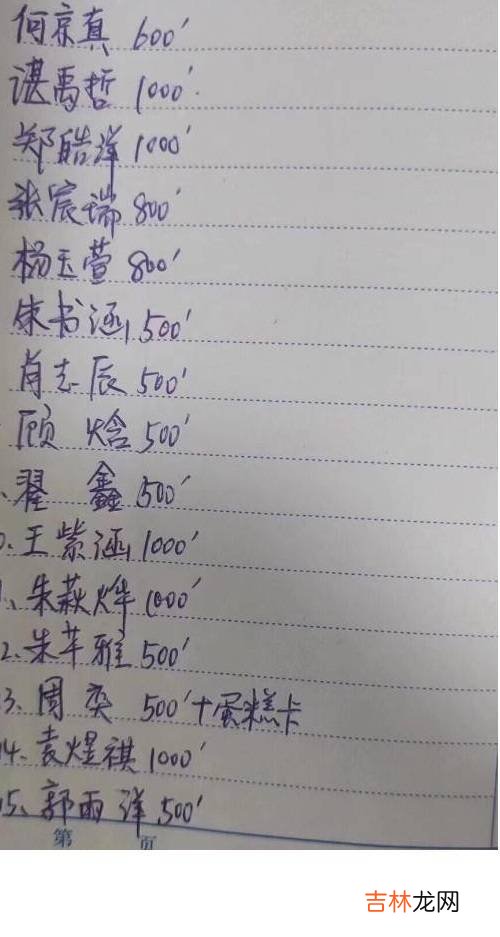 何京真 600'
谌禹哲 1000'
郑皓洋 1000'
张宸瑞 800'
杨玉萱 800'
束书涵 500'
肖志辰 500'
顾 焓 500'
翟 鑫 500'
0、王紫涵 1000'
1、朱萩烨 1000'
2、朱芊雅 500'
3、周奕 500'+蛋糕卡
14、袁煜祺 1000'
15、郭雨洋 500'
第 页
吉林龙网